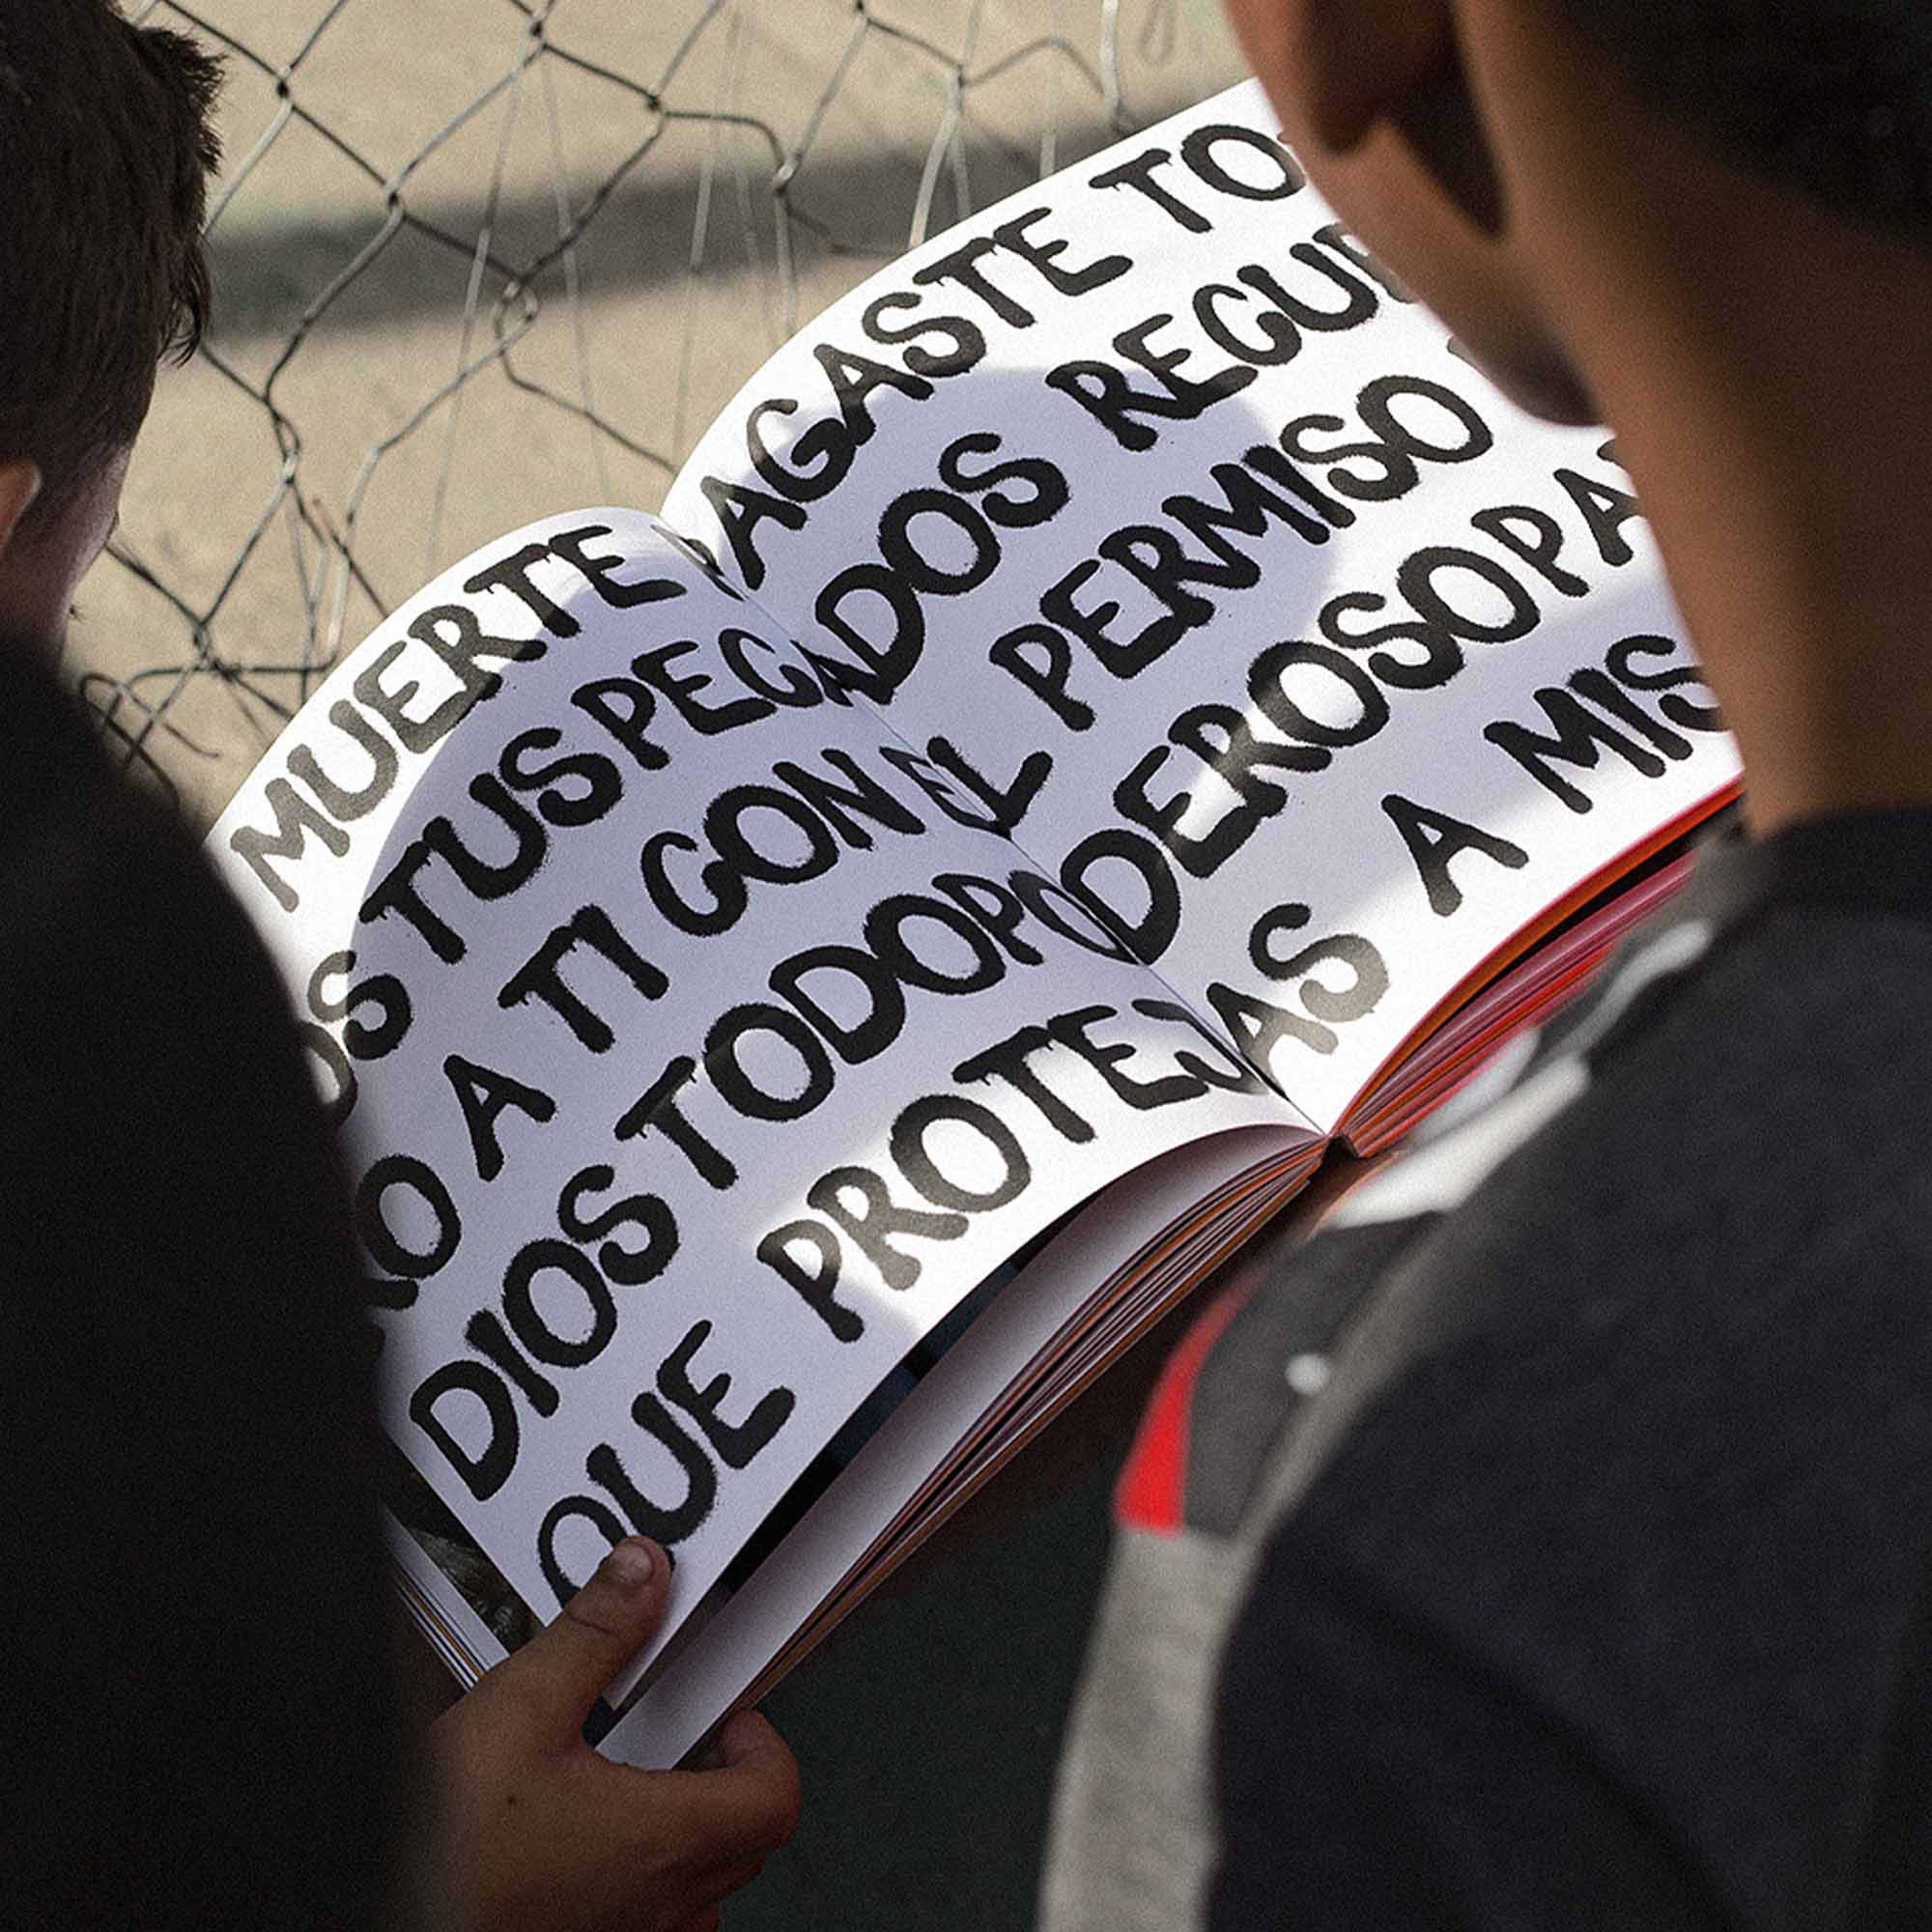 MUERTE PAGASTE
TUS PECADOS
A TI CON EL PERMISO
DIOS TODOPODEROSO
QUE PROTEJAS A MIS